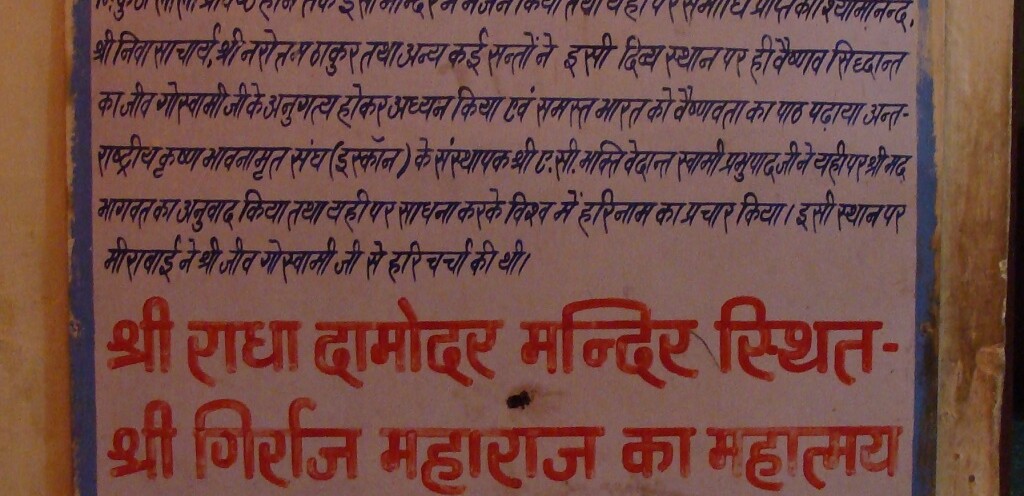 निकुंज लीला प्रविष्ट होने तक इसी मन्दिर में भजन किया तथा यहीं पर समाधि प्राप्त की श्यामानन्द,
श्री निवासाचार्य, श्री नरोत्तम ठाकुर तथा अन्य कई सन्तों ने इसी दिव्य स्थान पर ही वैष्णव सिध्दान्त
का जीव गोस्वामी जी के अनुगत्य होकर अध्यन किया एवं समस्त भारत को वैष्णवता का पाठ पढ़ाया अन्त-
राष्ट्रीय कृष्ण भावनामृत संघ (इस्कॉन) के संस्थापक श्री ए.सी. भक्ति वेदान्त स्वामी प्रभुपाद जी ने यही पर श्री मद
भागवत का अनुवाद किया तथा यही पर साधना करके विश्व में हरिनाम का प्रचार किया। इसी स्थान पर
मीराबाई ने श्री जीव गोस्वामी जी से हरि चर्चा की थी।
श्री राधा दामोदर मन्दिर स्थित-
श्री गिर्राज महाराज का महात्मय